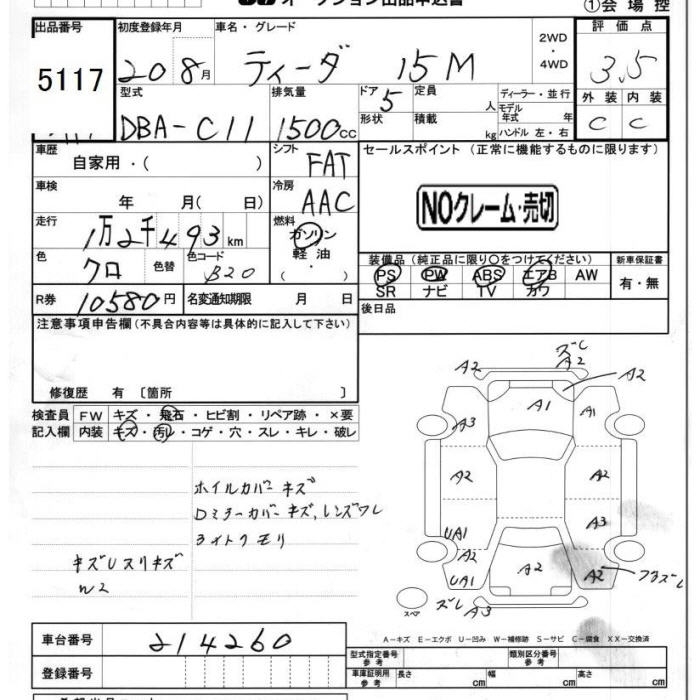 オークション出品申込書 ①会場控
出品番号 初度登録年月 車名・グレード 2WD・4WD 評価点
5117 20 8月 ティーダ 15M 3.5
型式 排気量 ドア 定員 人 ディーラー・並行 外装 内装
DBA-C11 1500cc 5 形状 積載 kg モデル年式 年 ハンドル 左・右 C C
車歴 シフト セールスポイント（正常に機能するものに限ります）
自家用・（ ） FAT
車検 冷房
年 月（ 日） AAC NOクレーム・売切
走行 燃料
1万2千493km ガソリン
色 色替 色コード 軽油 装備品（純正品に限り○をつけてください） 新車保証書
クロ B20 ・（ ） PS PW ABS エアB AW 有・無
SR ナビ TV カワ
R券 10580円 名変通知期限 月 日 後日品
注意事項申告欄（不具合内容等は具体的に記入して下さい）
修復歴 有〔箇所 〕
検査員 FW キズ・飛石・ヒビ割・リペア跡・×要
記入欄 内装 キズ・汚レ・コゲ・穴・スレ・キレ・破レ
ホイルカバーキズ
Dミラーカバーキズ、レンズワレ
ライトクモリ
キズUスリキズ
W2
ズレ
A2 A2 A2
A1 A1
A3
A2 A2
A3
UA1
A2 A2 A2 フタズレ
UA1
ズレ A3
スペア
A－キズ E－エクボ U－凹み W－補修跡 S－サビ C－腐食 XX－交換済
車台番号 214260
型式指定番号 参考 類別区分番号 参考
登録番号 車庫証明用 参考 長さ cm 幅 cm 高さ cm